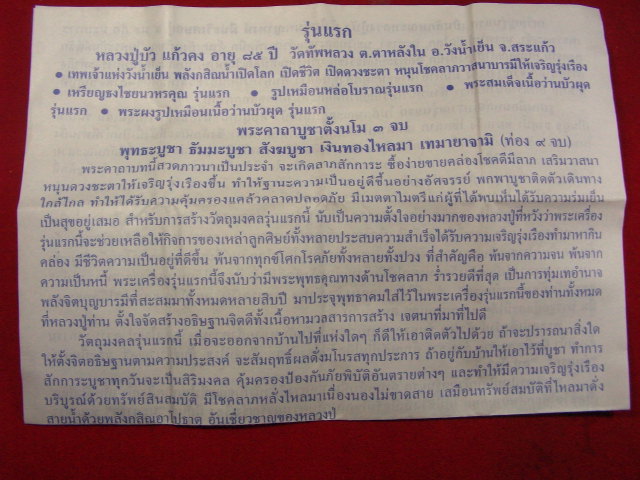 รุ่นแรก
หลวงปู่บัว แก้วคง อายุ ๘๕ ปี วัดทัพหลวง ต.ตาหลังใน อ.วังน้ำเย็น จ.สระแก้ว
● เทพเจ้าแห่งวังน้ำเย็น พลังกสิณน้ำเปิดโลก เปิดชีวิต เปิดดวงชะตา หนุนโชคลาภวาสนาบารมีให้เจริญรุ่งเรือง
● เหรียญธงไชยนวหรคุณ รุ่นแรก ● รูปเหมือนหล่อโบราณรุ่นแรก ● พระสมเด็จเนื้อว่านบัวผุด
รุ่นแรก ● พระผงรูปเหมือนเนื้อว่านบัวผุด รุ่นแรก
พระคาถาบูชาตั้งนโม ๓ จบ
พุทธะบูชา ธัมมะบูชา สังฆบูชา เงินทองไหลมา เทมายาจามิ (ท่อง ๙ จบ)
พระคาถาบทนี้สวดภาวนาเป็นประจำ จะเกิดลาภสักการะ ซื้อง่ายขายคล่องโชคดีมีลาภ เสริมวาสนา
หนุนดวงชะตาให้เจริญรุ่งเรืองขึ้น ทำให้ฐานะความเป็นอยู่ดีขึ้นอย่างอัศจรรย์ พกพาบูชาติดตัวเดินทาง
ใกล้ไกล ทำให้ได้รับความคุ้มครองแคล้วคลาดปลอดภัย มีเมตตาไมตรีแก่ผู้ที่ได้พบเห็นได้รับความร่มเย็น
เป็นสุขอยู่เสมอ สำหรับการสร้างวัตถุมงคลรุ่นแรกนี้ นับเป็นความตั้งใจอย่างมากของหลวงปู่ที่หวังว่าพระเครื่อง
รุ่นแรกนี้จะช่วยเหลือให้กิจการของเหล่าลูกศิษย์ทั้งหลายประสบความสำเร็จได้รับความเจริญรุ่งเรืองทำมาหากิน
คล่อง มีชีวิตความเป็นอยู่ที่ดีขึ้น พ้นจากทุกข์โศกโรคภัยทั้งหลายทั้งปวง ที่สำคัญคือ พ้นจากความจน พ้นจาก
ความเป็นหนี้ พระเครื่องรุ่นแรกนี้จึงนับว่ามีพระพุทธคุณทางด้านโชคลาภ ร่ำรวยดีที่สุด เป็นการทุ่มเทอำนาจ
พลังจิตบุญบารมีที่สะสมมาทั้งหมดหลายสิบปี มาประจุพุทธาคมใส่ไว้ในพระเครื่องรุ่นแรกนี้ของท่านทั้งหมด
ที่หลวงปู่ท่าน ตั้งใจจัดสร้างอธิษฐานจิตดีทั้งเนื้อหามวลสารการสร้าง เจตนาที่มาที่ไปดี
วัตถุมงคลรุ่นแรกนี้ เมื่อจะออกจากบ้านไปที่แห่งใดๆ ก็ดีให้เอาติดตัวไปด้วย ถ้าจะปรารถนาสิ่งใด
ให้ตั้งจิตอธิษฐานตามความประสงค์ จะสัมฤทธิ์ผลดั่งมโนรสทุกประการ ถ้าอยู่กับบ้านให้เอาไว้ที่บูชา ทำการ
สักการะบูชาทุกวันจะเป็นสิริมงคล คุ้มครองป้องกันภัยพิบัติอันตรายต่างๆ และทำให้มีความเจริญรุ่งเรือง
บริบูรณ์ด้วยทรัพย์สินสมบัติ มีโชคลาภหลั่งไหลมาเนื่องนองไม่ขาดสาย เสมือนทรัพย์สมบัติที่ไหลมาดั่ง
สายน้ำด้วยพลังกสิณอาโปธาตุ อันเชี่ยวชาญของหลวงปู่